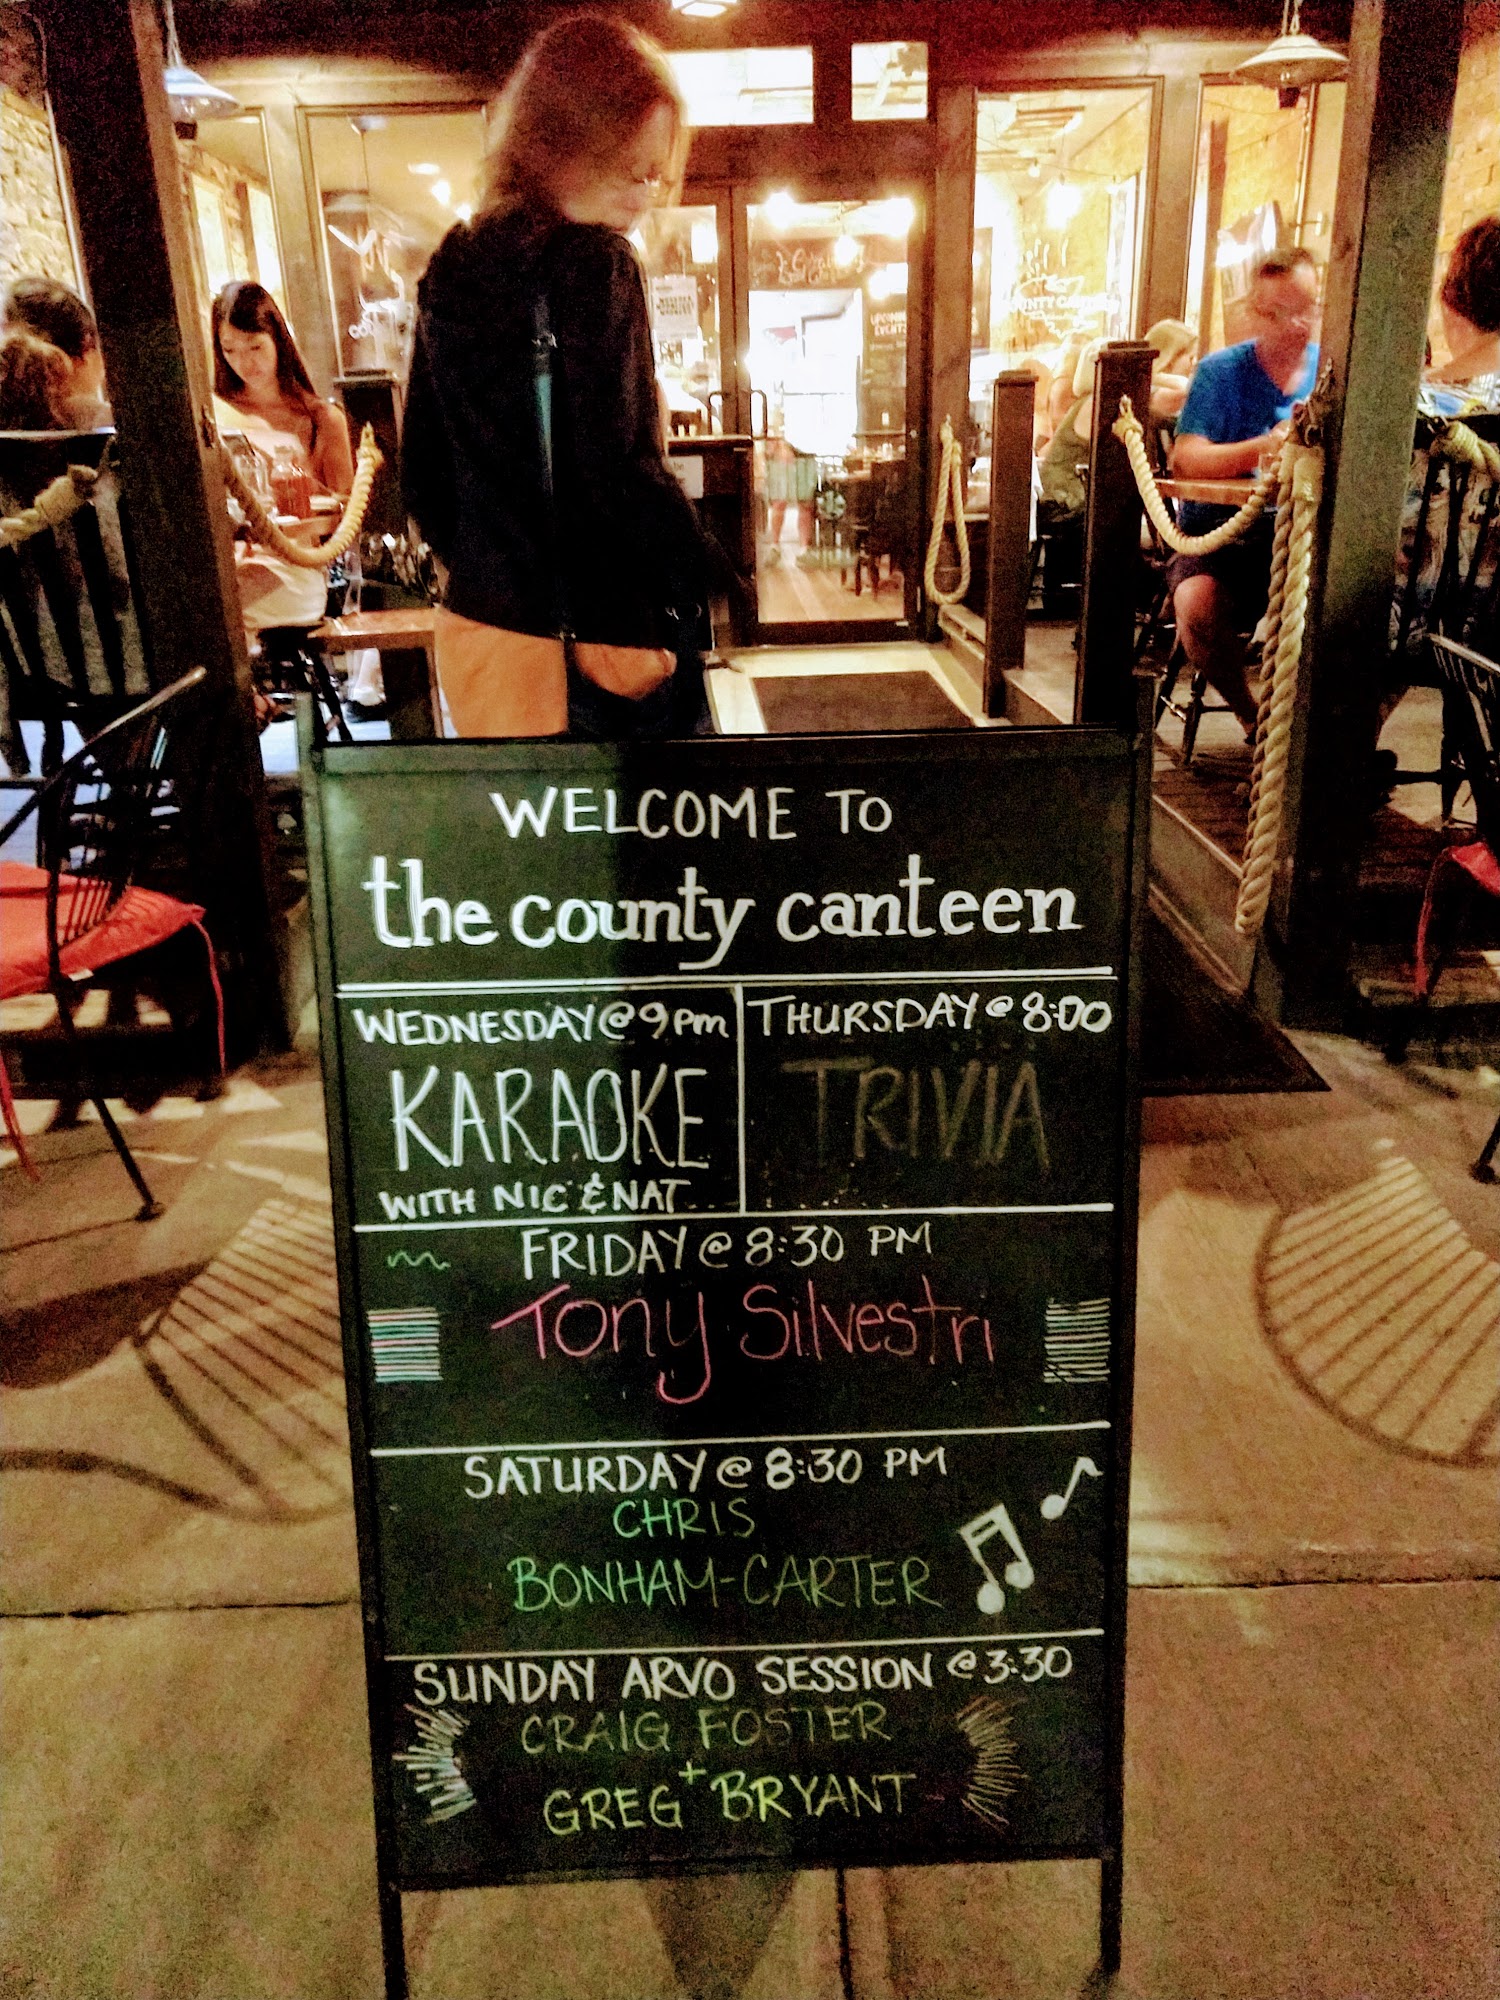 WELCOME TO
the county canteen
WEDNESDAY @ 9pm
KARAOKE
WITH NIC & NAT
THURSDAY @ 8:00
TRIVIA
FRIDAY @ 8:30 PM
Tony Silvestri
SATURDAY @ 8:30 PM
CHRIS
BONHAM-CARTER
SUNDAY ARVO SESSION @ 3:30
CRAIG FOSTER
+
GREG BRYANT